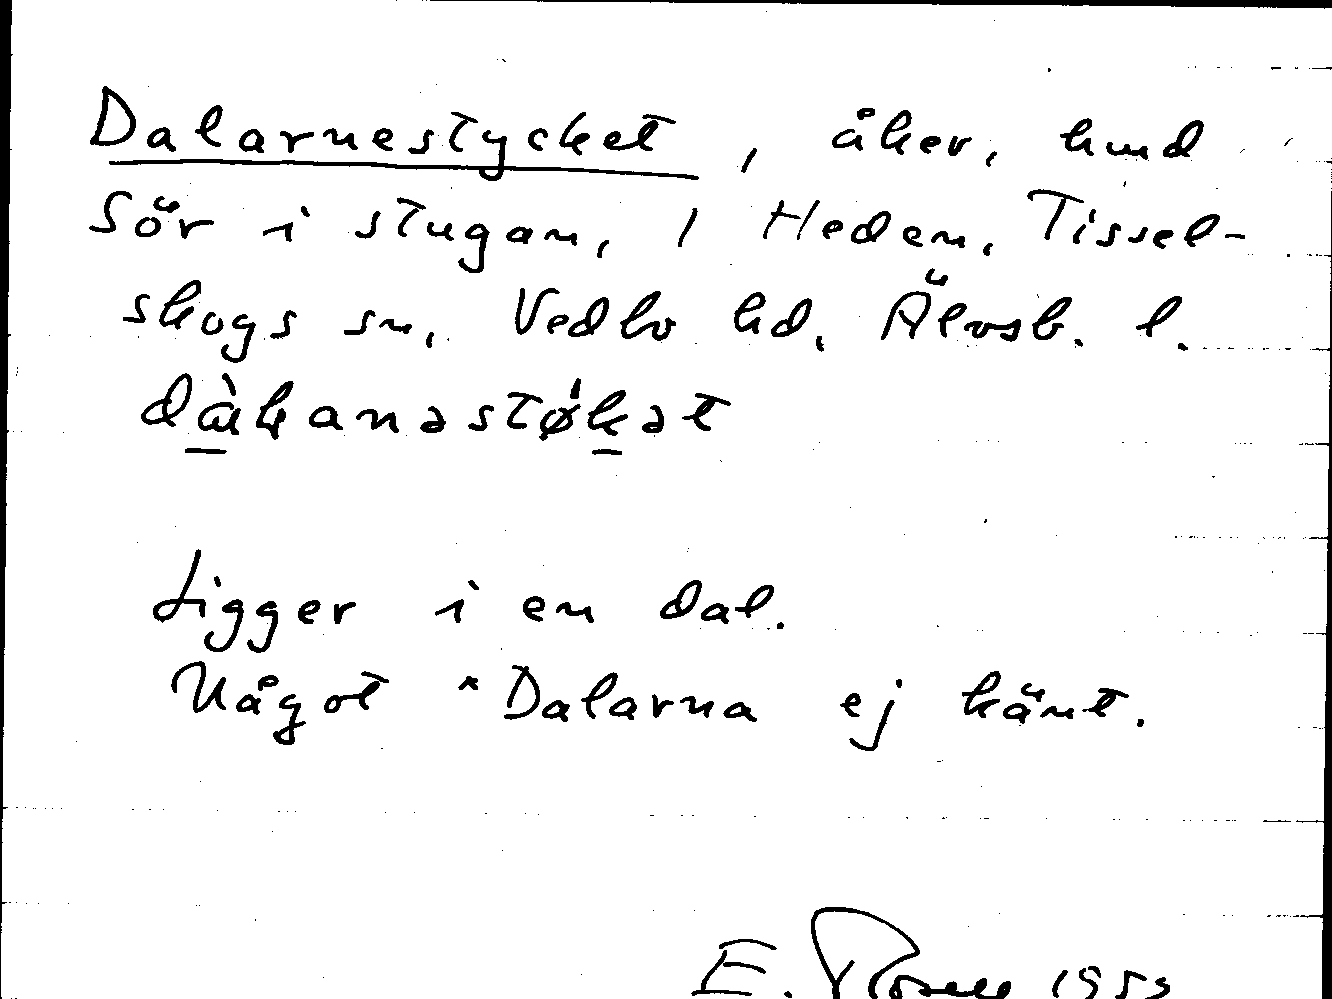 Dalarnestycket, åker, hmd
Sör i stugan, 1 Heden, Tissel-
skogs sn, Vedbo hd, Älvsb. l.
dàƚanəstø̀kət
Ligger i en dal.
Något *Dalarna ej känt.
E. 1953